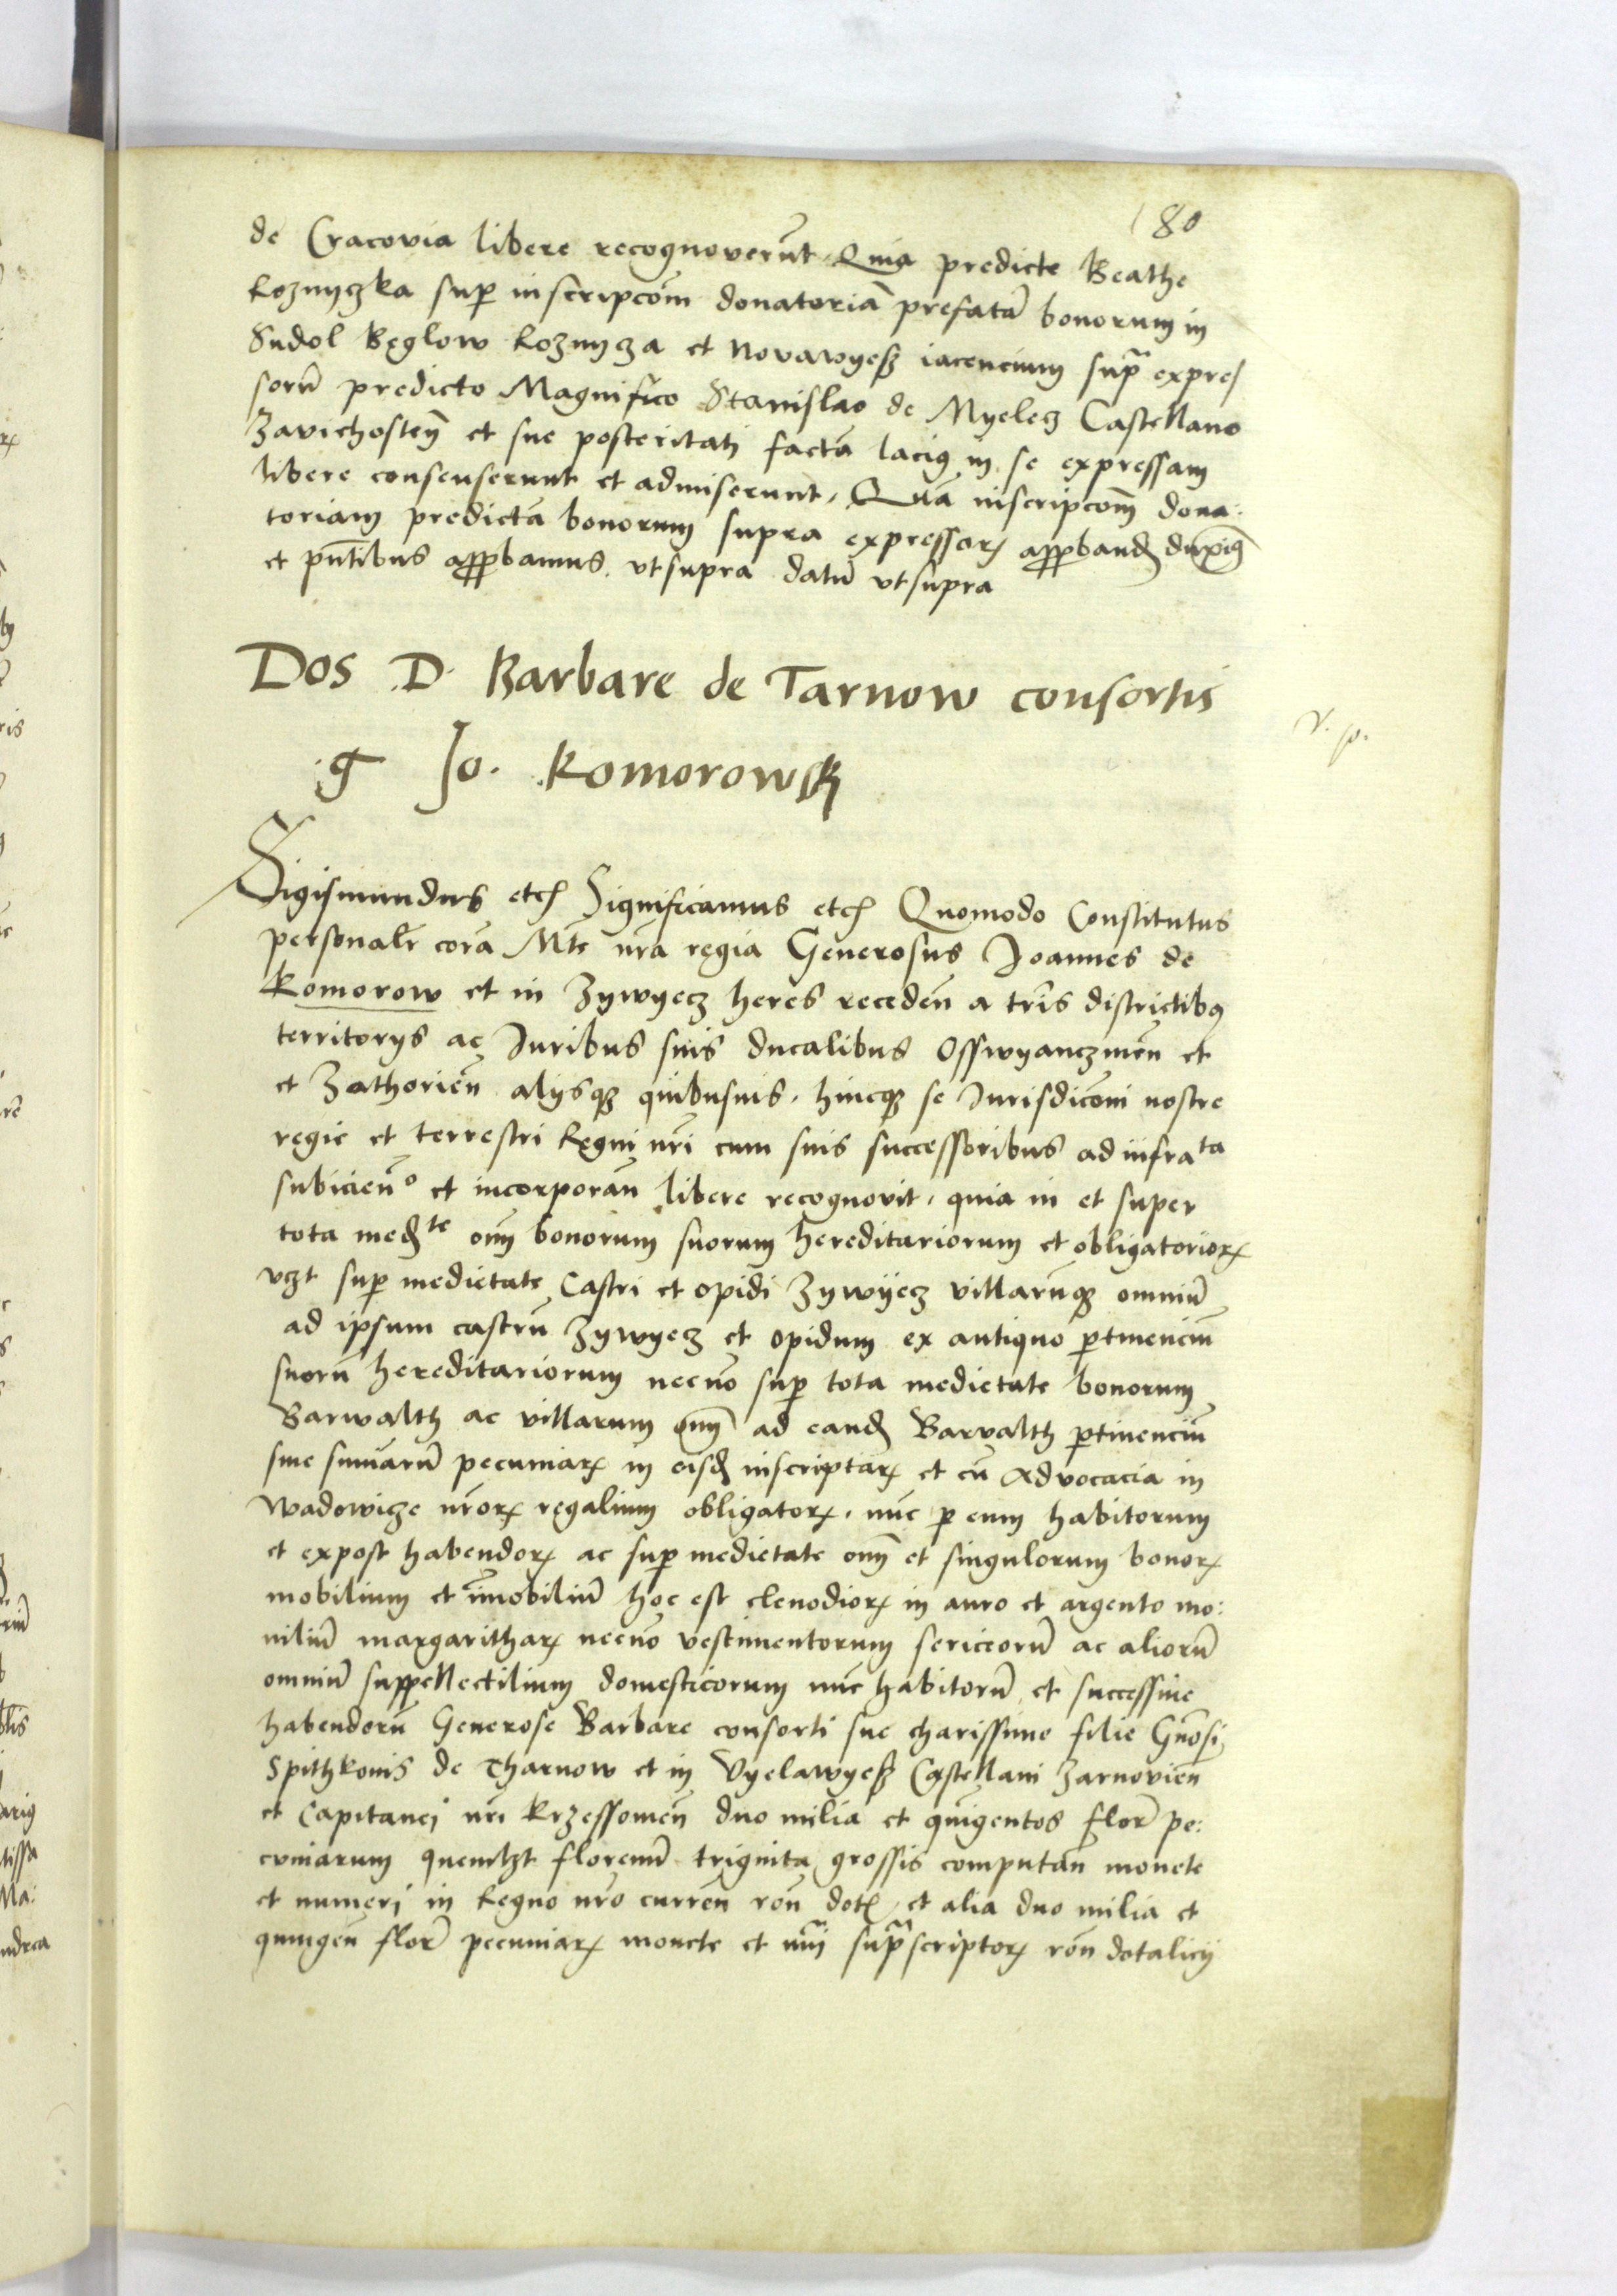 180
de Cracovia libere recognoverūt Quia predicte Beathe
Koznyczka sup inscripcoīm donatoriā prefatā bonorum in
Sudol Bęglow Koznycza et Novawyesz iacencium supra expres
sorū predicto Magnifico Stanislao de Myelecz Castellano
Zavichosteñ et sue posteritati factā lacius in se expressam
libere consenserunt et admiserunt, Quā inscripcoīm dona:
toriam predictā bonorum supra expressorꝝ approbandā duximꝰ
et pñtibus approbamus. vt supra datū vt supra
Dos D. Barbare de Tarnow consortis
g Jo. Komorowskÿ
v. p.
Sigismundus etcꝫ Significamus etcꝫ Quomodo Constitutus
personalr̄ corā Mte nr̄a regia Generosus Joannes de
Komorow et in Zywyecz heres recedeñ a terr̄is districtibꝰ
territorÿs ac Juribus suis ducalibus Osswyanczmeñ et
et Zathorieñ alÿsqꝫ quibusuis, hincqꝫ se Jurisdicōni nostre
regie et terrestri Regni nr̄i cum suis successoribus ad infra ta
subicieñº et incorporañ libere recognovit, quia in et super
tota medte om̄ bonorum suorum hereditariorum et obligatoriorꝝ
vꝫt sup medietate Castri et opidi Zywÿecz villarūqꝫ omniū
ad ipsum castrū Zywyecz et opidum ex antiquo ꝑtinenciū
suorū hereditariorum necnō sup tota medietate bonorum
Barwalth ac villarum om̄ ad eandꝫ Barvalth ꝑtinenciū
sive sum̄arū pecuniarꝝ in eisdꝫ inscriptarꝝ et cū Advocacia in
Wadowicze nr̄orꝝ regalium obligatorꝝ, nūc ꝑ eum habitorum
et expost habendorꝝ ac sup medietate om̄ et singulorum bonorꝝ
mobilium et im̄obiliū hoc est clenodiorꝝ in auro et argento mo:
niliū margaritharꝝ necnō vestimentorum sericeorū ac aliorū
omniū suppellectilium domesticorum nūc habitorū et successive
habendorū Generose Barbare consorti sue charissime filie Gñosi
Spithkonis de Tharnow et in Vyelawyesz Castellani Zarnovieñ
et Capitanei nr̄i Krzessovieñ duo milia et quīgentos florē pe:
cuniarum quemlꝫt florenū triginta grossis computañ monete
et numeri in Regno nr̄o curreñ rōn dotꝭ, et alia duo milia et
quingeñ florē pecuniarꝝ monete et nūi supra scriptorꝝ rōn dotalicÿ